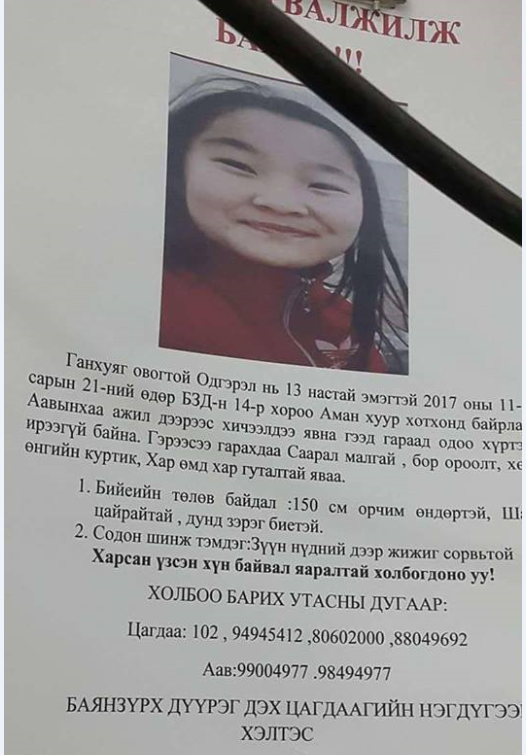 ВАЛЖИЛЖ
Ганхуяг овогтой Одгэрэл нь 13 настай эмэгтэй 2017 оны 11-
сарын 21-ний өдөр БЗД-н 14-р хороо Аман хуур хотхонд байрла
Аавынхаа ажил дээрээс хичээлдээ явна гээд гараад одоо хүртэ
ирээгүй байна. Гэрээсээ гарахдаа Саарал малгай , бор ороолт, хө
өнгийн куртик, Хар өмд хар гуталтай яваа.
1. Бийеийн төлөв байдал :150 см орчим өндөртэй, Ша
цайрайтай , дунд зэрэг биетэй.
2. Содон шинж тэмдэг:Зүүн нүдний дээр жижиг сорвьтой
Харсан үзсэн хүн байвал яаралтай холбогдоно уу!
ХОЛБОО БАРИХ УТАСНЫ ДУГААР:
Цагдаа: 102 , 94945412 ,80602000 ,88049692
Аав:99004977 .98494977
БАЯНЗҮРХ ДҮҮРЭГ ДЭХ ЦАГДААГИЙН НЭГДҮГЭЭ
ХЭЛТЭС